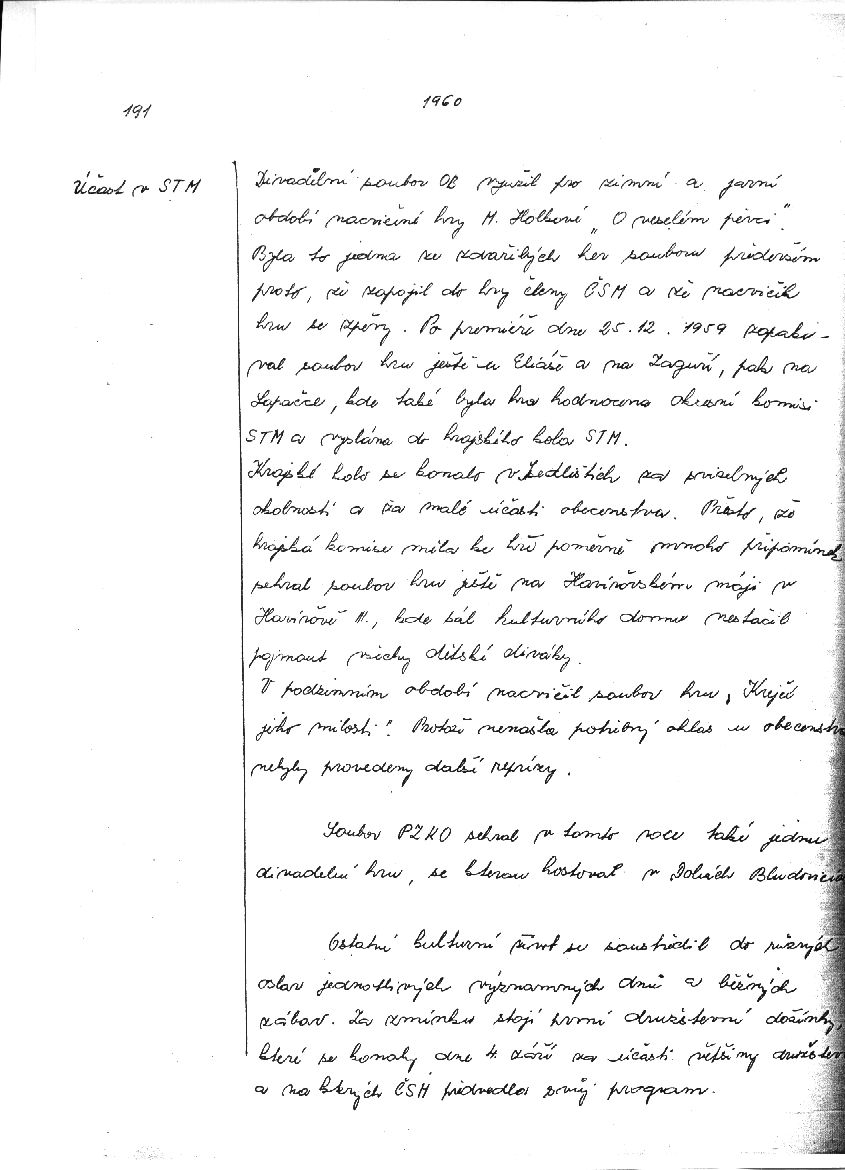 191
1960
Účast v STM
Divadelní soubor OB využil pro zimní a jarní
období nacvičené hry M. Holkové „O veselém pěvci“.
Byla to jedna ze zdařilých her souboru především
proto, že zapojil do hry členy ČSM a že nacvičil
hru se zpěvy. Po premiéře dne 25.12. 1959 zopako-
val soubor hru ještě u Eliáše a na Zaguří, pak na
Lapačce, kde také byla hra hodnocena okresní komisí
STM a vyslána do krajského kola STM.
Krajské kolo se konalo v Sedlištích za svízelných
okolností a za malé účasti obecenstva. Přesto, že
krajská komise měla ke hře poměrně mnoho připomínek
sehrál soubor hru ještě na Havířovském máji v
Havířově II., kde sál kulturního domu nestačil
pojmout všechy dětské diváky.
V podzimním období nacvičil soubor hru „Krejčí
jeho milosti“. Protože nenašla potřebný ohlas u obecenstva
nebyly provedeny další reprízy.
Soubor PZKO sehrál v tomto roce také jednu
divadelní hru, se kterou hostoval v Dolních Bludovicích
Ostatní kulturní život se soustředil do různých
oslav jednotlivých významných dnů a běžných
zábav. Za zmínku stojí první družstevní dožínky,
které se konaly dne 4. září za účasti většiny
a na kterých ČSM předvedlo svůj program.